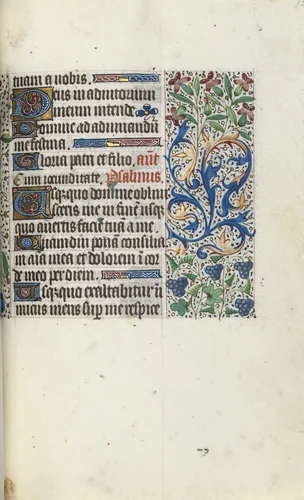 mam a nobis.
Deus in adiutorium
meum intende.
Domine ad adiuuandū
me festina.
Gloria patri et filio, añt
Cum iocunditate, Psalmus.
Usq̄quo domine obliui
sceris me in finē usq̄
quo auertis faciē tuā a me.
Quamdiu ponā consilia
in aīa mea et dolorem ī cor
de meo per diem.
Usq̄quo exaltabitur ī
micus meus sup̄ me respice